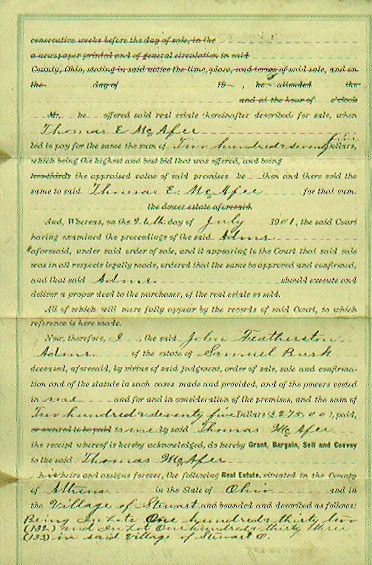 consecutive weeks before the day of sale, in the
a newspaper printed and of general circulation, in said
County, Ohio, stating in said notice the time, place, and terms of said sale, and on
the day of 19 , he attended the
and at the hour of o'clock
M., he offered said real estate hereinafter described for sale, when
Thomas E. McAfee
bid to pay for the same the sum of Two hundred & seventy five Dollars,
which being the highest and best bid that was offered, and being
two-thirds the appraised value of said premises he then and there sold the
same to said Thomas E. McAfee for that sum.
the dower estate aforesaid.
And, Whereas, on the 26th day of July 1901, the said Court
having examined the proceedings of the said Admr
aforesaid, under said order of sale, and it appearing to the Court that said sale
was in all respects legally made, ordered that the same be approved and confirmed,
and that said Admr should execute and
deliver a proper deed to the purchaser, of the real estate so sold.
All of which will more fully appear by the records of said Court, to which
reference is here made.
Now, therefore, I the said John Featherston
Admr. of the estate of Samuel Bush
deceased, aforesaid, by virtue of said judgment, order of sale, sale and confirma-
tion and of the statute in such cases made and provided, and of the powers vested
in me and for and in consideration of the premises, and the sum of
Two hundred & seventy five Dollars ($275.00), paid,
or secured to be paid to me by said Thomas McAfee
the receipt whereof is hereby acknowledged, do hereby Grant, Bargain, Sell and Convey
to the said Thomas McAfee
his heirs and assigns forever, the following Real Estate, situated in the County
of Athens in the State of Ohio and in
the Village of Stewart and bounded and described as follows:
Being In Lots One hundred & thirty two
(132) and In Lot One hundred & thirty three
(133) in said Village of Stewart O.